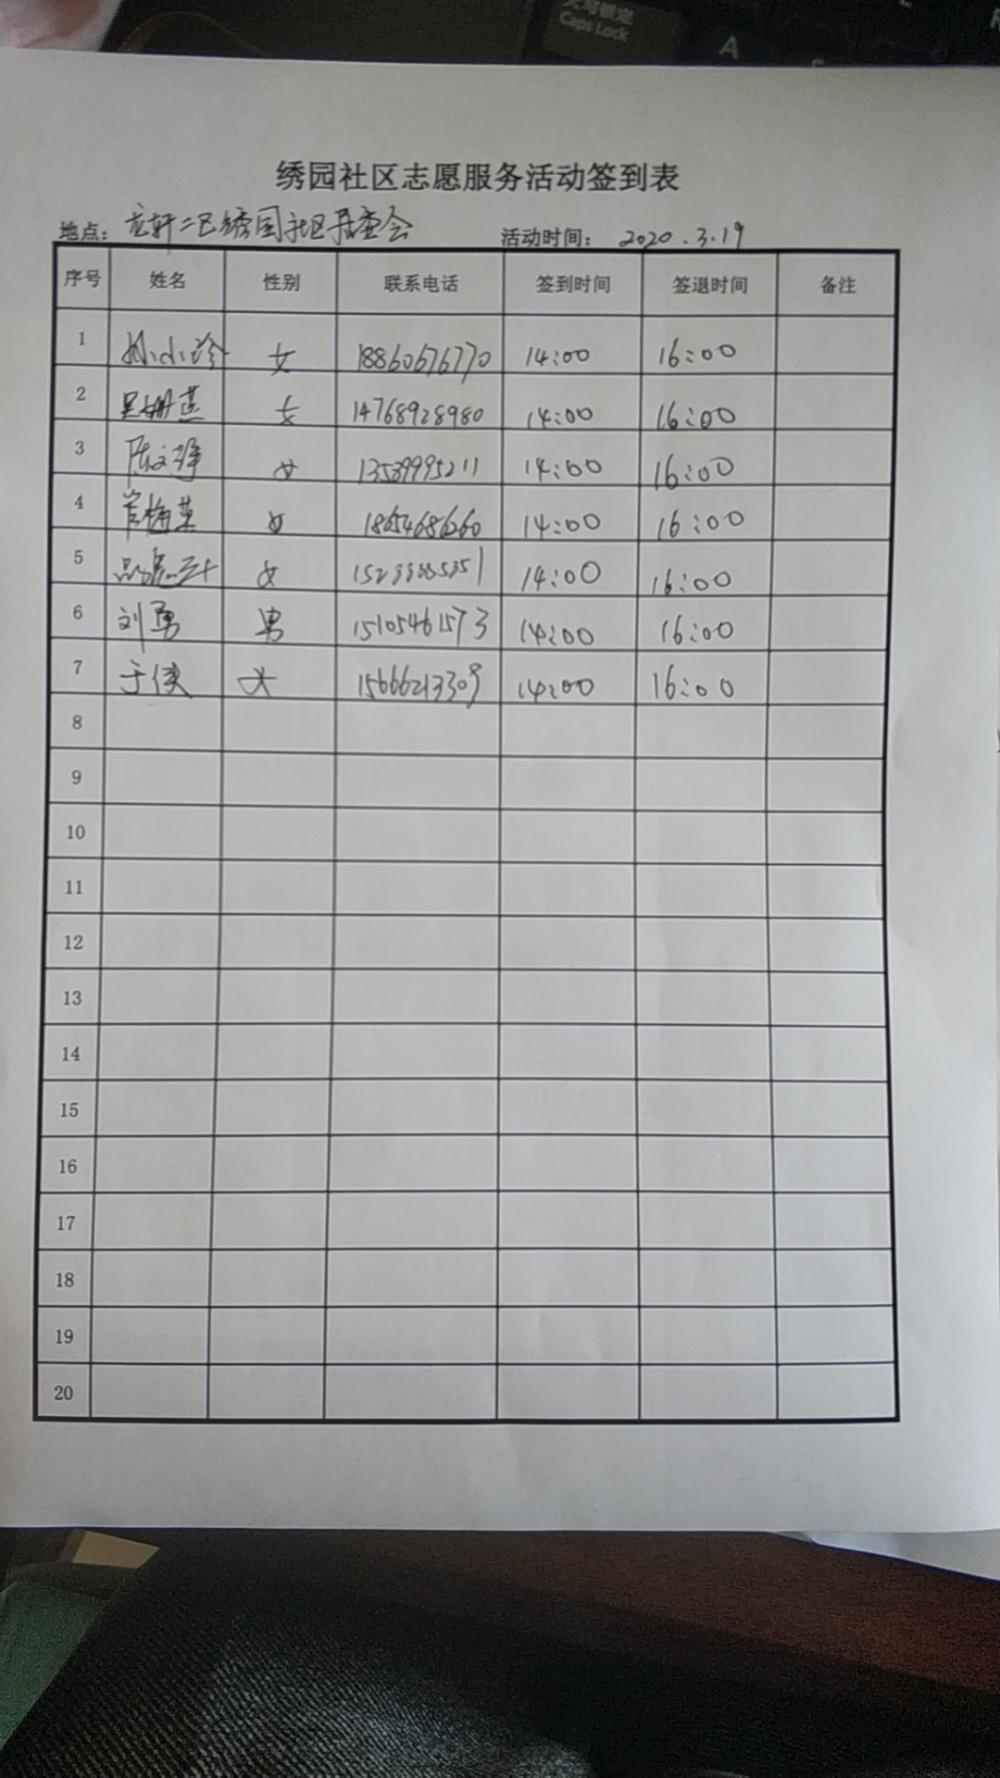 大写锁定
Caps Lock
A
绣园社区志愿服务活动签到表
地点：龙轩二区绣园社区居委会 活动时间： 2020.3.19
序号 姓名 性别 联系电话 签到时间 签退时间 备注
1 孙小珍 女 18860676770 14:00 16:00
2 女 14768928980 14:00 16:00
3 女 14:00 16:00
4 女 18654686260 14:00 16:00
5 女 14:00 16:00
6 刘勇 男 15105461573 14:00 16:00
7 于侠 女 15666213309 14:00 16:00
8
9
10
11
12
13
14
15
16
17
18
19
20